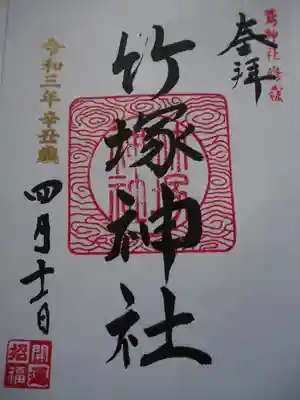 奉拝
竹塚神社
令和三年辛丑歳
四月十一日
開運
招福